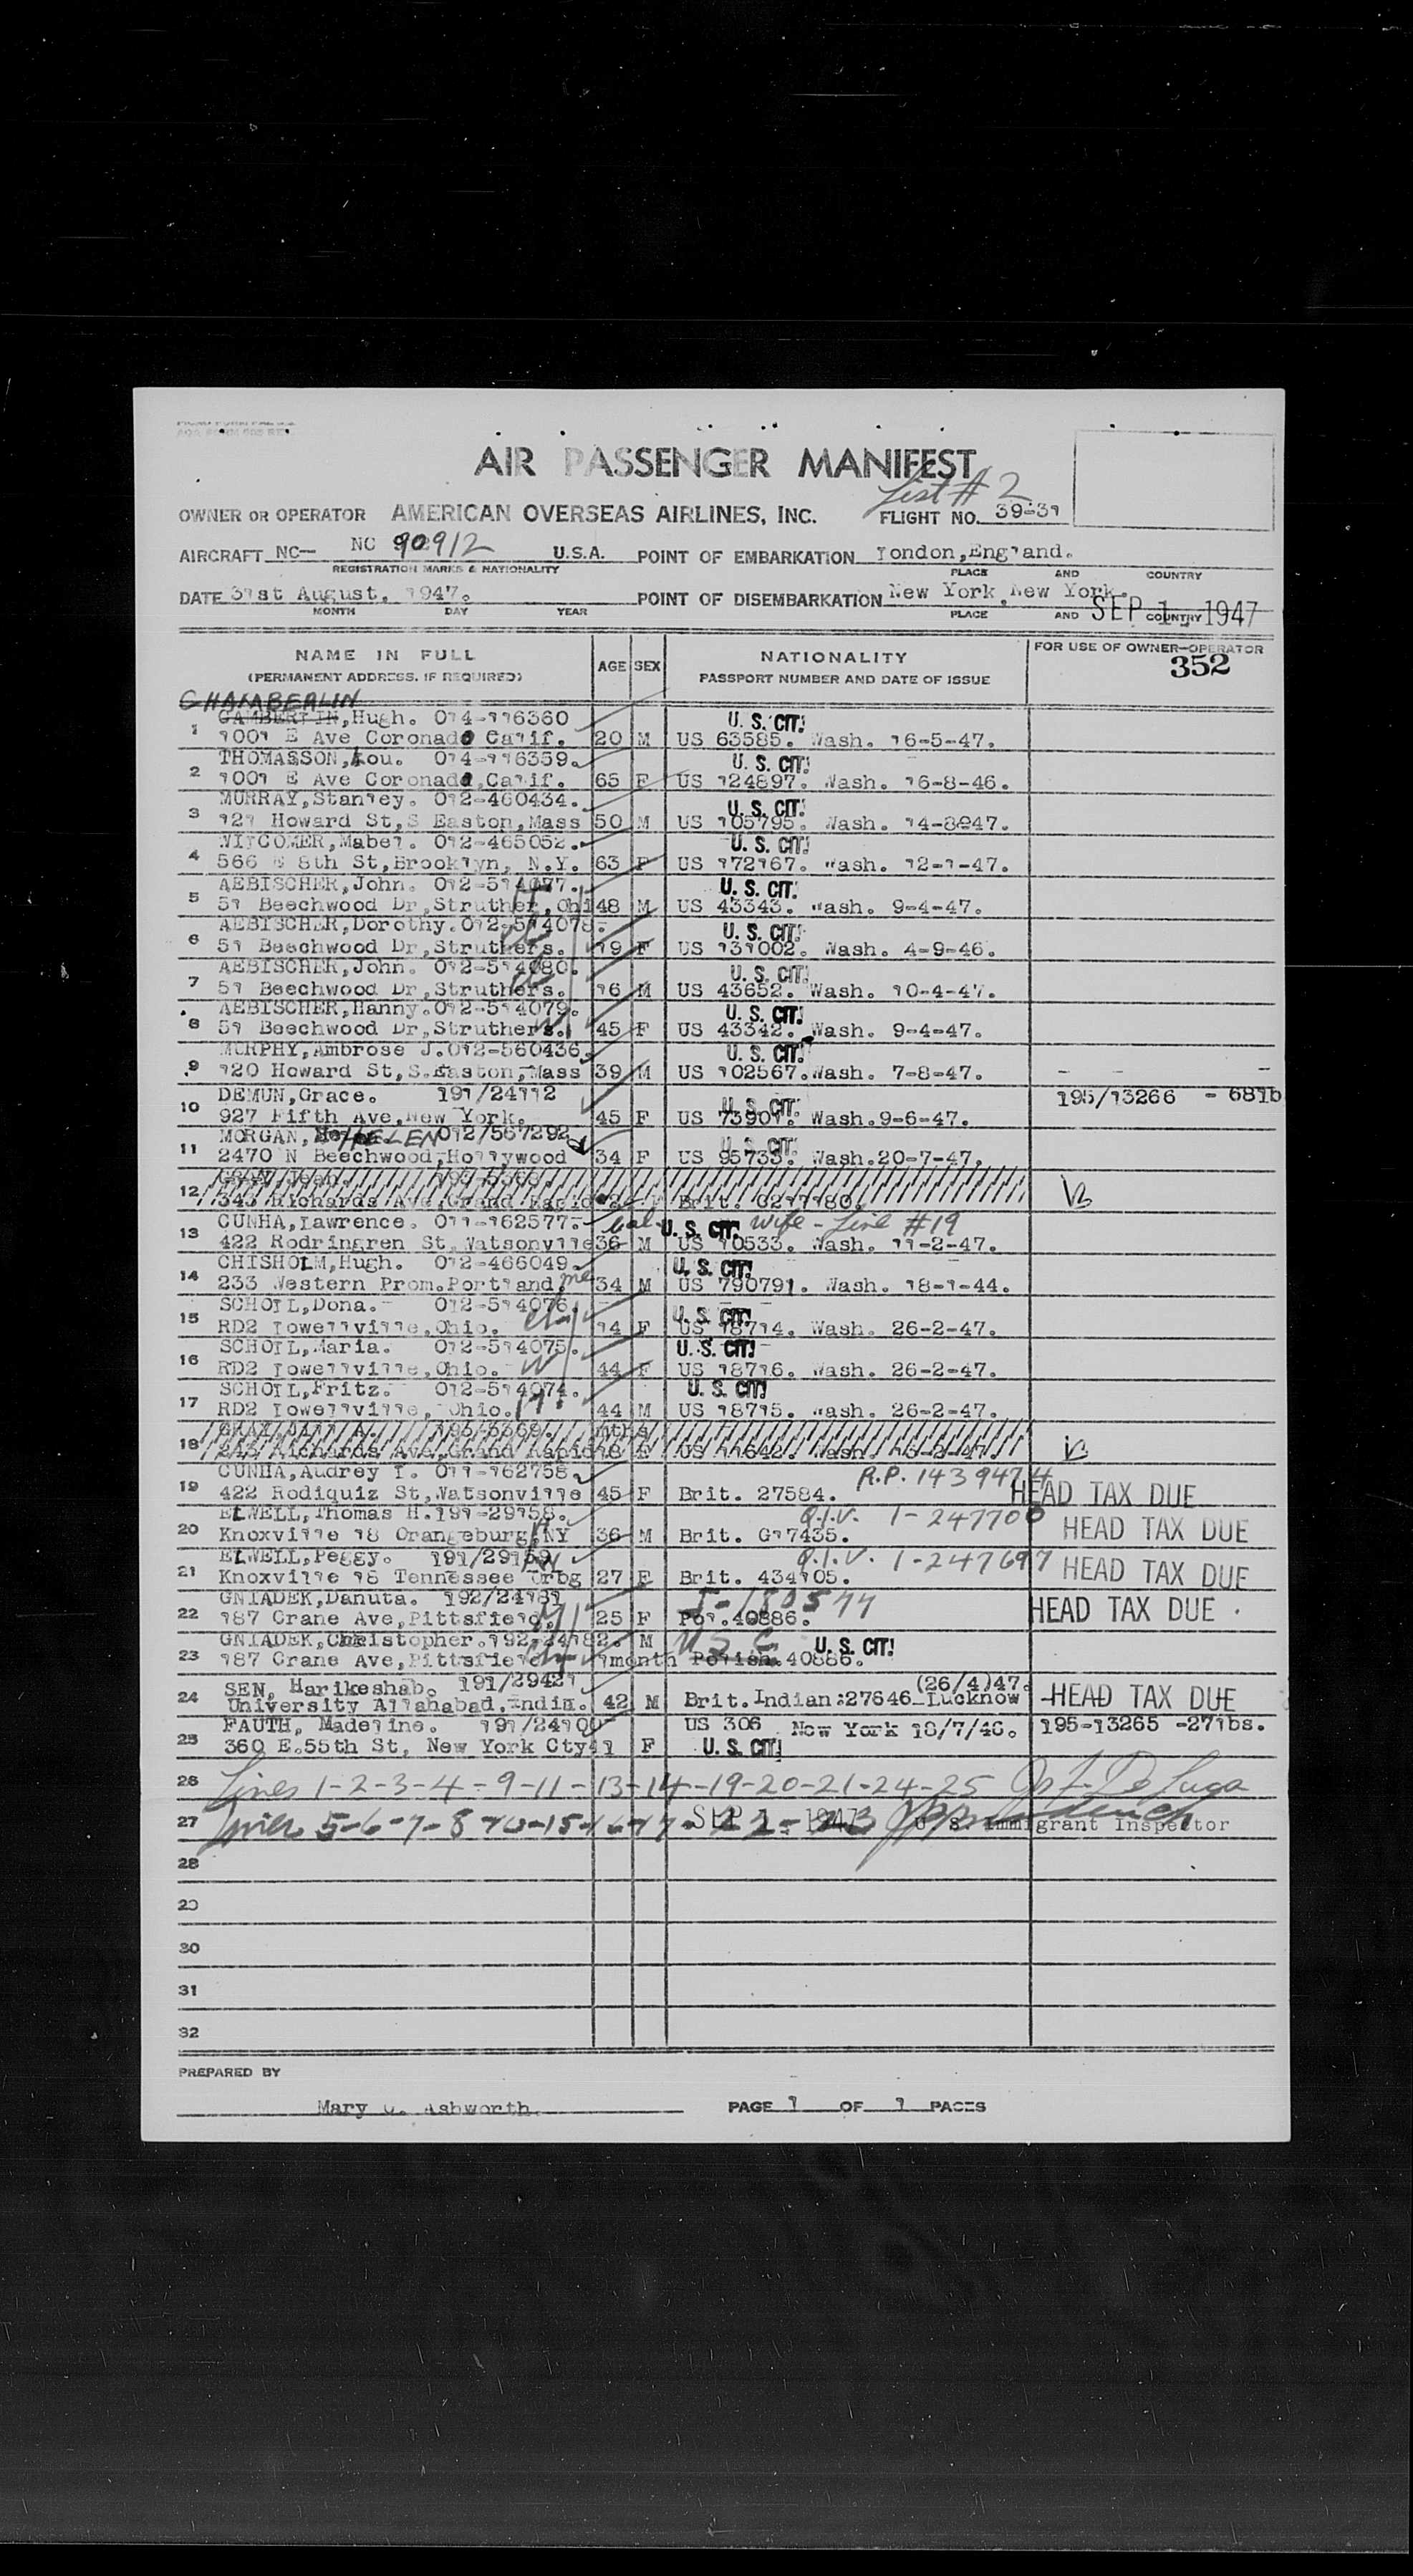 AIR PASSENGER MANIFEST
List # 2
OWNER OR OPERATOR AMERICAN OVERSEAS AIRLINES, INC. FLIGHT NO. 39-31
AIRCRAFT NC— NC 90912 U.S.A. POINT OF EMBARKATION London,England.
REGISTRATION MARKS & NATIONALITY PLACE AND COUNTRY
DATE 31st August. 1947. POINT OF DISEMBARKATION New York,New York.
MONTH DAY YEAR PLACE AND COUNTRY SEP 1 1947
NAME IN FULL AGE SEX NATIONALITY FOR USE OF OWNER—OPERATOR
(PERMANENT ADDRESS. IF REQUIRED) PASSPORT NUMBER AND DATE OF ISSUE 352
CHAMBERLIN
1 GAMBERTIN,Hugh. 014-116360 U. S. CIT!
1001 E Ave Coronado Calif. 20 M US 63585. Wash. 16-5-47.
2 THOMASSON,Lou. 014-116359. U. S. CIT!
1001 E Ave Coronado,Calif. 65 F US 124897. Wash. 16-8-46.
3 MURRAY,Stanley. 012-460434. U. S. CIT!
121 Howard St,S Easton,Mass 50 M US 105795. Wash. 14-8-47.
4 WITCOMER,Mabel. 012-465052. U. S. CIT!
566 E 8th St,Brooklyn, N.Y. 63 F US 172167. Wash. 12-1-47.
5 AEBISCHER,John. 012-514077. U. S. CIT!
51 Beechwood Dr,Struther,Ohi 48 M US 43343. Wash. 9-4-47.
6 AEBISCHER,Dorothy.012-514078. U. S. CIT!
51 Beechwood Dr,Struthers. 19 F US 131002. Wash. 4-9-46.
7 AEBISCHER,John. 012-514080. U. S. CIT!
51 Beechwood Dr,Struthers. 16 M US 43652. Wash. 10-4-47.
8 AEBISCHER,Hanny.012-514079. U. S. CIT!
51 Beechwood Dr,Struthers. 45 F US 43342. Wash. 9-4-47.
9 MURPHY,Ambrose J.012-560436. U. S. CIT!
120 Howard St,S.Easton,Mass 39 M US 102567.Wash. 7-8-47.
10 DEMUN,Grace. 191/24112 U. S. CIT! 195/13266 - 681b
927 Fifth Ave,New York. 45 F US 73901. Wash.9-6-47.
11 MORGAN, HELEN 012/567292 U. S. CIT!
2470 N Beechwood,Hollywood 34 F US 95733. Wash.20-7-47.
12 GRAY,Jean.
343 Richards Ave,Grand Rapid Brit. C217180.
13 CUNHA,Lawrence. 011-162577. Cal. U. S. CIT! Wife - Line #19
422 Rodringren St,Watsonville 36 M US 10533. Wash. 11-2-47.
14 CHISHOLM,Hugh. 012-466049. U. S. CIT!
233 Western Prom.Portland, me 34 M US 790791. Wash. 18-1-44.
15 SCHOLL,Dona. 012-514076. U. S. CIT!
RD2 Lowellville,Ohio. 14 F US 18714. Wash. 26-2-47.
16 SCHOLL,Maria. 012-514075. U. S. CIT!
RD2 Lowellville,Ohio. W 44 F US 18716. Wash. 26-2-47.
17 SCHOLL,Fritz. 012-514074. U. S. CIT!
RD2 Lowellville, Ohio. 44 M US 18715. Wash. 26-2-47.
18 mths
Richards Ave,Grand Rapid 18 F US 11642. Wash
19 CUNHA,Audrey L. 011-162758. R.P. 1439474
422 Rodiquiz St,Watsonville 45 F Brit. 27584. HEAD TAX DUE
20 ELWELL,Thomas H.191-29158. Q.I.V. 1-247700
Knoxville 18 Orangeburg NY 36 M Brit. G17435. HEAD TAX DUE
21 ELWELL,Peggy. 191/29159 Q.I.V. 1-247697
Knoxville 18 Tennessee Orbg 27 F Brit. 434105. HEAD TAX DUE
22 GNIADEK,Danuta. 192/24181
187 Crane Ave,Pittsfield. 25 F Pol.40886. HEAD TAX DUE
23 GNIADEK,Christopher.192-24182. M U S C U. S. CIT!
187 Crane Ave,Pittsfield 1month Polish.40886.
24 SEN, Harikeshab. 191/29421 (26/4)47.
University Allahabad,India. 42 M Brit.Indian:27646 Lucknow HEAD TAX DUE
25 FAUTH, Madeline. 191/24100 US 306 New York 18/7/46. 195-13265 -271bs.
360 E.55th St, New York Cty 41 F U. S. CIT!
26 Lines 1-2-3-4-9-11-13-14-19-20-21-24-25
27 Lines 5-6-7-8-10-15-16-17-22-23 SEP 1 1947 U. S. Immigrant Inspector
28
29
30
31
32
PREPARED BY
Mary Ashworth. PAGE 1 OF 1 PAGES